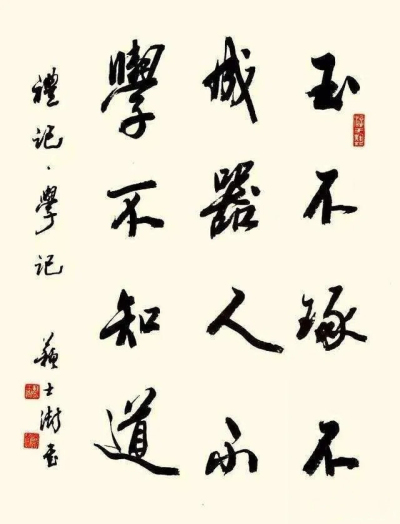 玉不琢不
成器人不
學不知道
禮記·學記 蘇士澍書